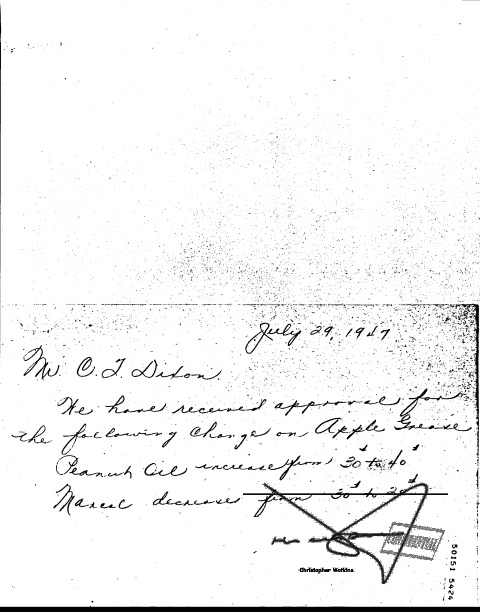 July 29, 1947
Mr. C. T. Dixon
We have received approval for
the following change on Apple Grease
Peanut Oil increase from 30# to 40#
decreases from 30# to 20#
CONFIDENTIAL
Christopher Watkins
50151 5424